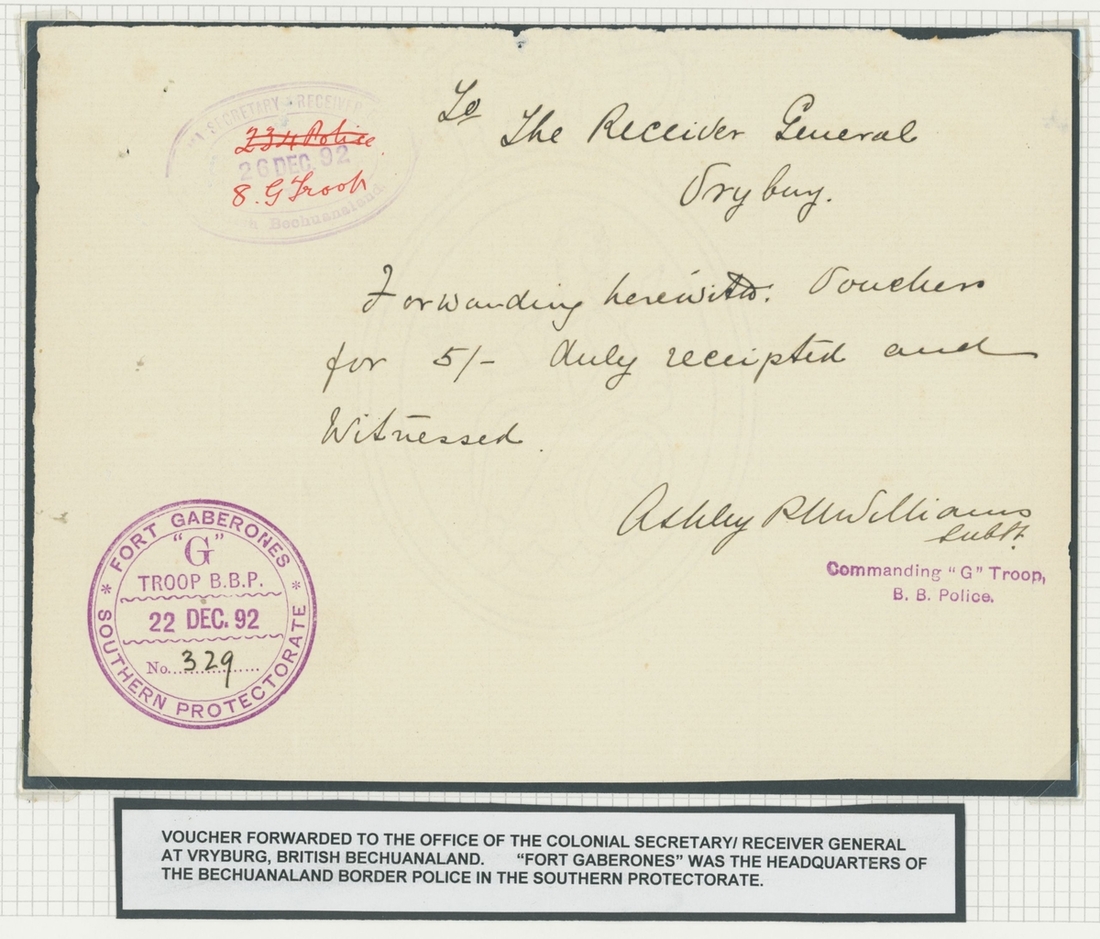 SECRETARY RECEIVER
234 Police
26 DEC. 92
8. G Troop
Bechuanaland
To
The Receiver General
Vryburg.
Forwarding herewith. Vouchers
for 5/- duly receipted and
Witnessed.
Ashley Williams
Subt.
Commanding "G" Troop,
B. B. Police.
* FORT GABERONES *
"G"
TROOP B.B.P.
22 DEC. 92
No. 329
SOUTHERN PROTECTORATE
VOUCHER FORWARDED TO THE OFFICE OF THE COLONIAL SECRETARY/ RECEIVER GENERAL
AT VRYBURG, BRITISH BECHUANALAND. "FORT GABERONES" WAS THE HEADQUARTERS OF
THE BECHUANALAND BORDER POLICE IN THE SOUTHERN PROTECTORATE.